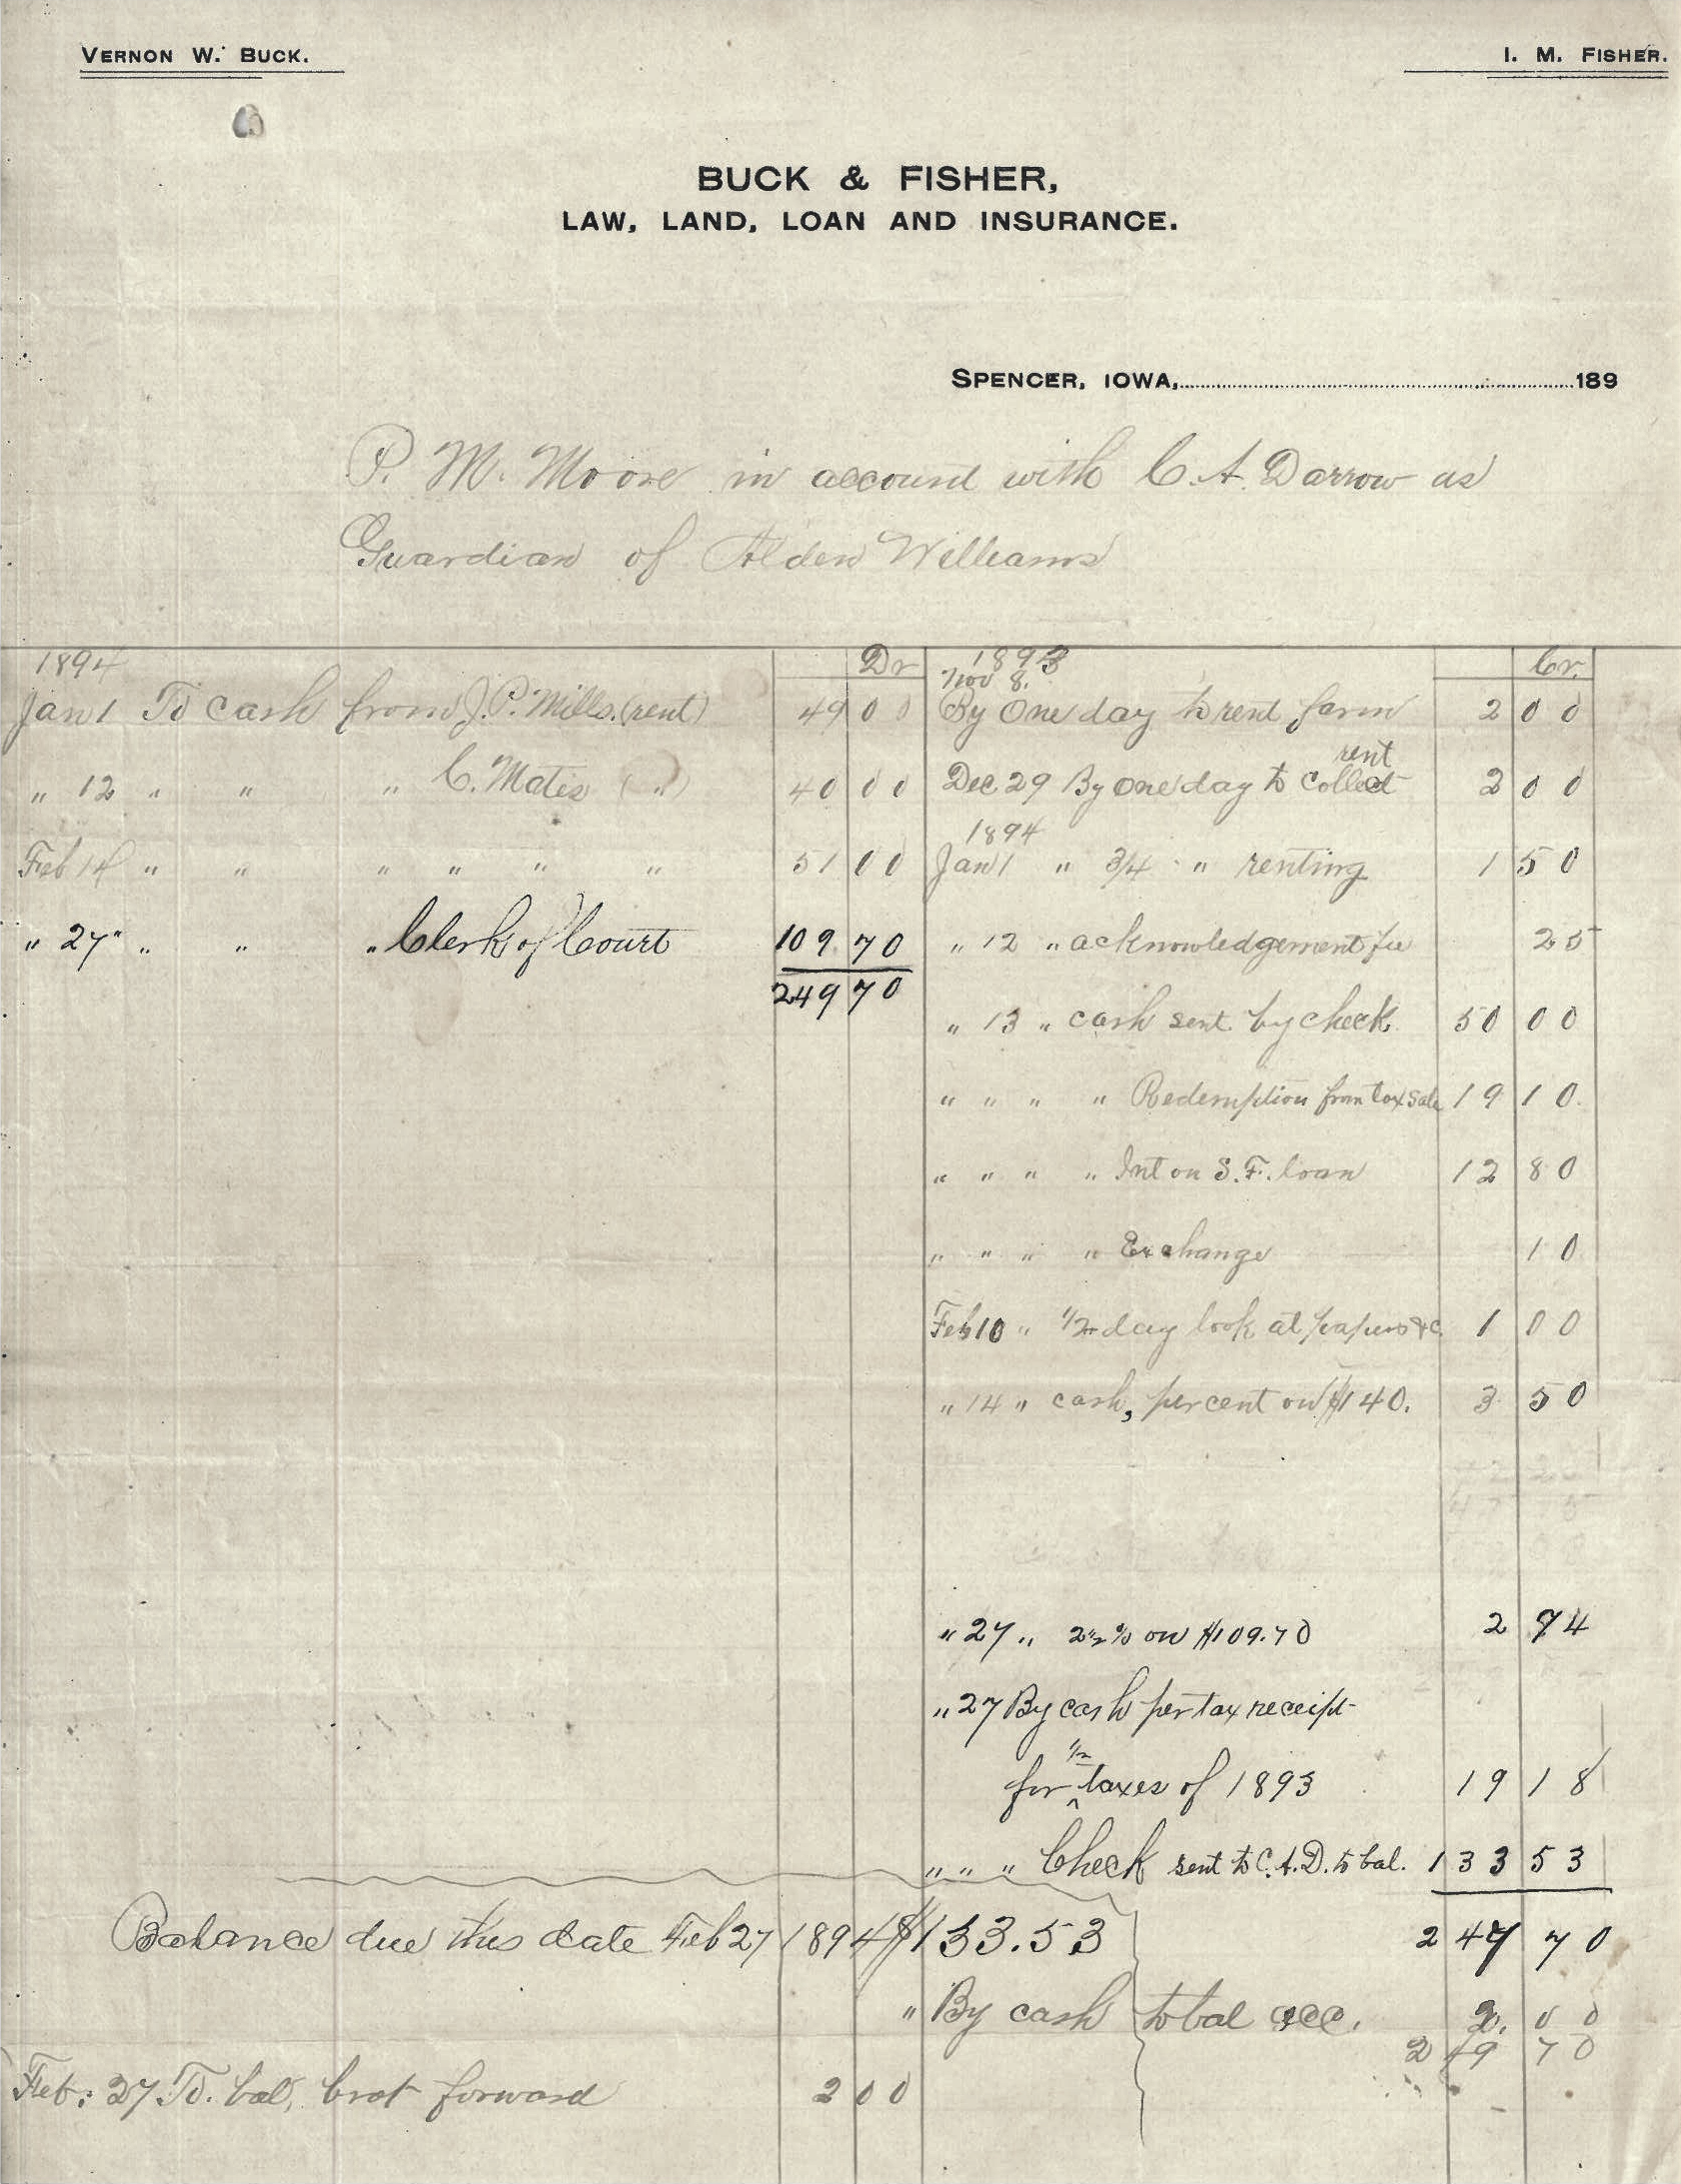 VERNON W. BUCK.
I. M. FISHER.
BUCK & FISHER,
LAW, LAND, LOAN AND INSURANCE.
SPENCER, IOWA, 189
P. M. Moore in account with C. A. Darrow as
Guardian of Alden Williams
1894 Dr
Jan 1 To cash from J. P. Mills. (rent) 49 00
" 12 " " " C. Mates ( " ) 40 00
Feb 14 " " " " " " 51 00
" 27 " " " Clerk of Court 109 70
249 70
1893 Cr.
Nov 8.
By One day to rent farm 2 00
rent
Dec 29 By one day to collect 2 00
1894
Jan 1 " 3/4 " " renting 1 50
" 12 " acknowledgement fee 25
" 13 " cash sent by check 50 00
" " " " Redemption from tax sale 19 10
" " " " Int on S. F. loan 12 80
" " " " Exchange 10
Feb 10 " 1/2 day look at papers &c. 1 00
" 14 " cash, per cent on $140. 3 50
" 27 " 2 1/2 % on $109.70 2 74
" 27 By cash per tax receipt
1/2
for ^ taxes of 1893 19 18
" " " Check sent to C. A. D. to bal. 133 53
Balance due this date Feb 27 1894 $133.53
247 70
" By cash to bal acc. 2. 00
249 70
Feb: 27 To. bal, brot forward 2 00